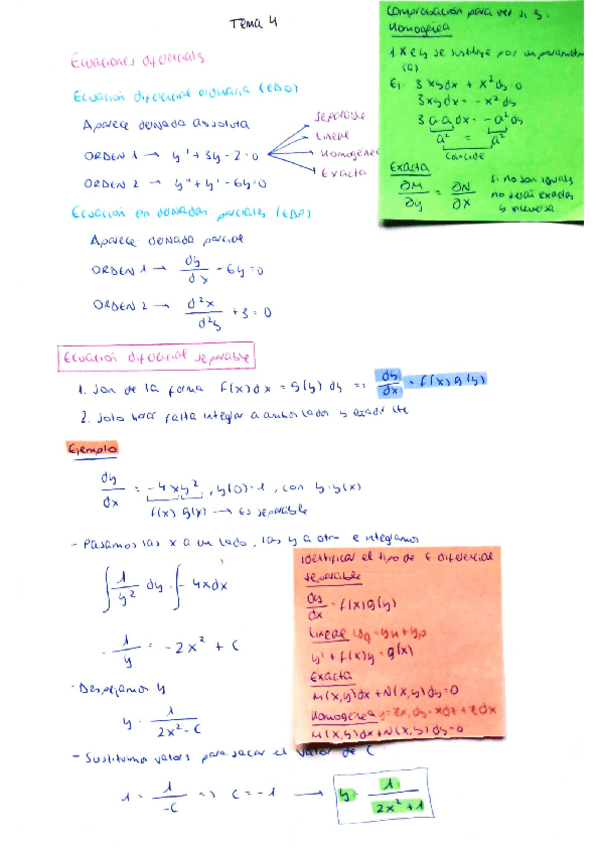 Tema 4
Ecuaciones diferenciales
Ecuación diferencial ordinaria (EDO)
Aparece derivada absoluta
ORDEN 1 → y' + 3y - 2 = 0
separable
lineal
Homogénea
Exacta
ORDEN 2 → y'' + y' - 6y = 0
Ecuación en derivadas parciales (EDP)
Aparece derivada parcial
ORDEN 1 → dy/dx - 6y = 0
ORDEN 2 → d²x/d²y + 3 = 0
Comprobación para ver si es:
Homogénea
1 x e y se sustituye por un parámetro
(a)
Ej: 3xydx + x²dy = 0
3xydx = -x²dy
3 a·a dx = -a²dy
a² = a²
Coincide
Exacta
∂M/∂y = ∂N/∂x
si no son iguales
no serán exactas
y viceversa
Ecuación diferencial separable
1. Son de la forma f(x)dx = g(y) dy => dy/dx = f(x) g(y)
2. Solo hará falta integrar a ambos lados y
Ejemplo
dy/dx = -4xy², y(0) = 1, con y = y(x)
f(x) g(y) → Es separable
- Pasamos las x a un lado, las y a otro e integramos
∫ 1/y² dy = ∫ -4xdx
- 1/y = -2x² + C
- Despejamos y
y = 1/(2x² - C)
- Sustituimos valores para sacar el valor de C
1 = 1/-C => C = -1 → y = 1/(2x² + 1)
Identificar el tipo de E diferencial
separable
dy/dx = f(x)g(y)
Lineal yg = yh + yp
y' + f(x)y = g(x)
Exacta
M(x,y)dx + N(x,y)dy = 0
Homogénea y = zx, dy = xdz + zdx
M(x,y)dx + N(x,y)dy = 0